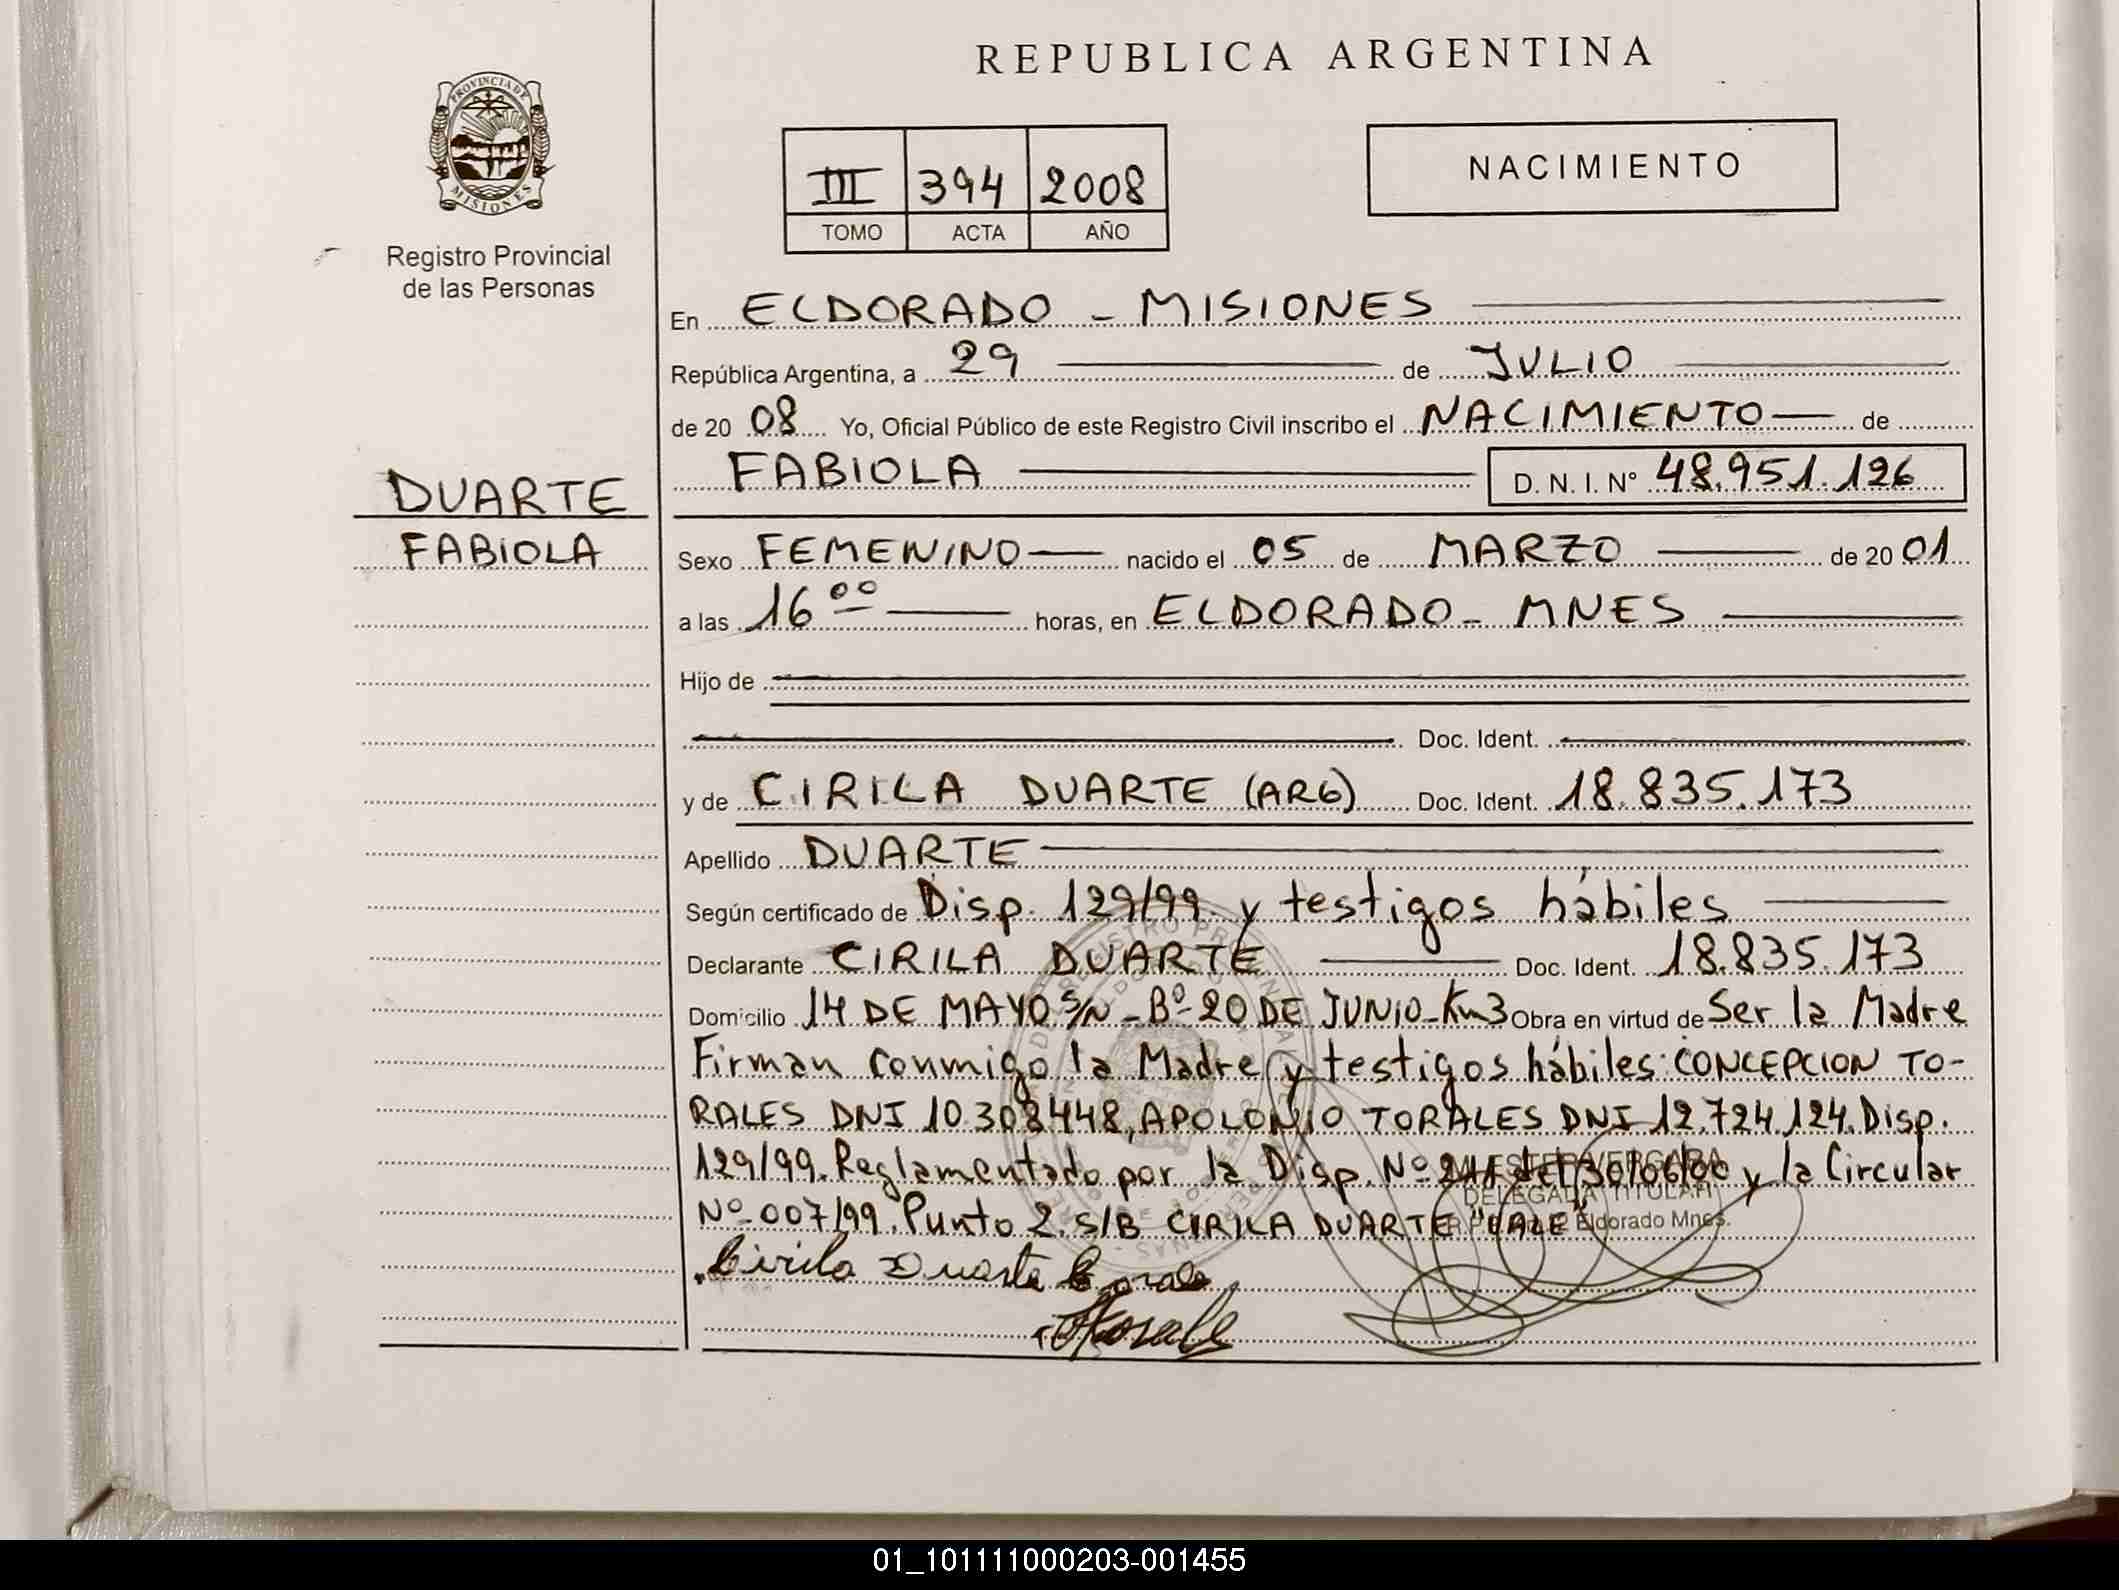 REPUBLICA ARGENTINA
PROVINCIA DE MISIONES
Registro Provincial
de las Personas
III 394 2008
TOMO ACTA AÑO
NACIMIENTO
En ELDORADO - MISIONES
República Argentina, a 29 de JULIO
de 20 08 Yo, Oficial Público de este Registro Civil inscribo el NACIMIENTO de
FABIOLA D. N. I. Nº 48.951.126
DUARTE
FABIOLA
Sexo FEMENINO nacido el 05 de MARZO de 20 01
a las 16 00 horas, en ELDORADO - MNES
Hijo de
Doc. Ident.
y de CIRILA DUARTE (ARG) Doc. Ident. 18.835.173
Apellido DUARTE
Según certificado de Disp. 129/99 y testigos hábiles
Declarante CIRILA DUARTE Doc. Ident. 18.835.173
Domicilio 14 DE MAYO S/N - Bº 20 DE JUNIO - Km3 Obra en virtud de Ser la Madre
Firman conmigo la Madre y testigos hábiles: CONCEPCION TO-
RALES DNI 10.308448, APOLONIO TORALES DNI 12.724.124. Disp.
129/99. Reglamentado por la Disp. Nº del 30/06/00 y la Circular
Nº 007/99. Punto 2. S/B CIRILA DUARTE "VALE"
ESTER VERGARA
DELEGADA TITULAR
Eldorado Mnes.
Cirila Duarte
01_101111000203-001455